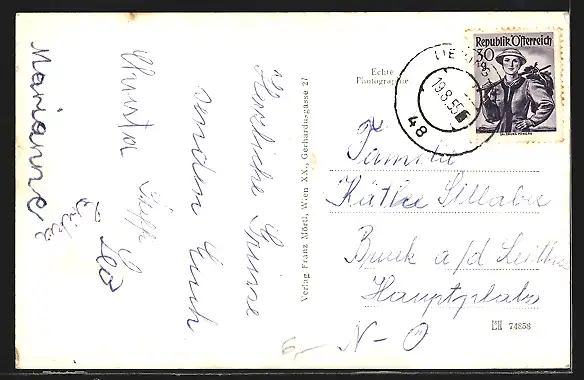 Herzliche Grüsse
senden Euch
Christa
Marianne
Erika
Leo
Verlag Franz Mörtl, Wien XX., Gerhardusgasse 27
Echte
Photographie
Republik Österreich
30
19.8.55
48
Familie
Käthe
Bruck a/d Leitha
Hauptplatz
N-Ö
74858